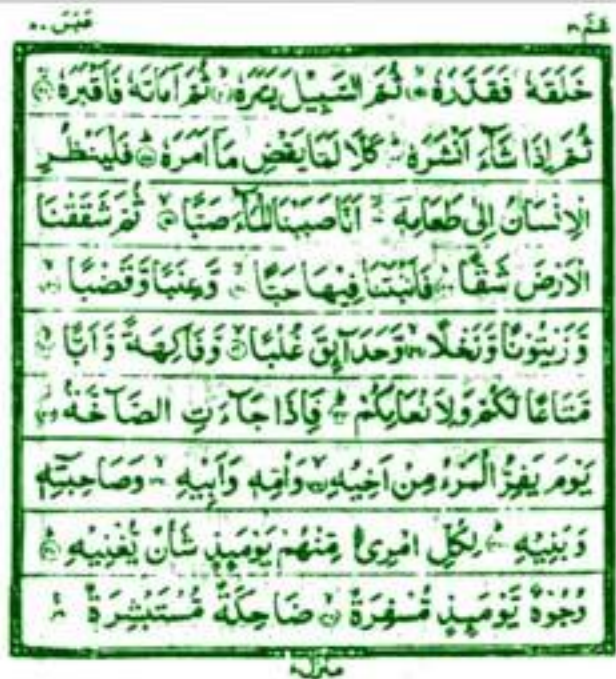 عَمَّ ٣٠ عَبَسَ ٨٠
خَلَقَهٗ فَقَدَّرَهٗ ۙ ثُمَّ السَّبِيْلَ يَسَّرَهٗ ۙ ثُمَّ اَمَاتَهٗ فَاَقْبَرَهٗ ۙ
ثُمَّ اِذَا شَآءَ اَنْشَرَهٗ ؕ كَلَّا لَمَّا يَقْضِ مَآ اَمَرَهٗ ؕ فَلْيَنْظُرِ
الْاِنْسَانُ اِلٰى طَعَامِهٖۤ ۙ اَنَّا صَبَبْنَا الْمَآءَ صَبًّا ۙ ثُمَّ شَقَقْنَا
الْاَرْضَ شَقًّا ۙ فَاَنْۢبَتْنَا فِيْهَا حَبًّا ۙ وَّعِنَبًا وَّقَضْبًا ۙ
وَّزَيْتُوْنًا وَّنَخْلًا ۙ وَّحَدَآئِقَ غُلْبًا ۙ وَّفَاكِهَةً وَّاَبًّا ۙ
مَّتَاعًا لَّكُمْ وَلِاَنْعَامِكُمْ ؕ فَاِذَا جَآءَتِ الصَّآخَّةُ ؗ
يَوْمَ يَفِرُّ الْمَرْءُ مِنْ اَخِيْهِ ۙ وَاُمِّهٖ وَاَبِيْهِ ۙ وَصَاحِبَتِهٖ
وَبَنِيْهِ ؕ لِكُلِّ امْرِئٍ مِّنْهُمْ يَوْمَئِذٍ شَاْنٌ يُّغْنِيْهِ ؕ
وُجُوْهٌ يَّوْمَئِذٍ مُّسْفِرَةٌ ۙ ضَاحِكَةٌ مُّسْتَبْشِرَةٌ ۚ